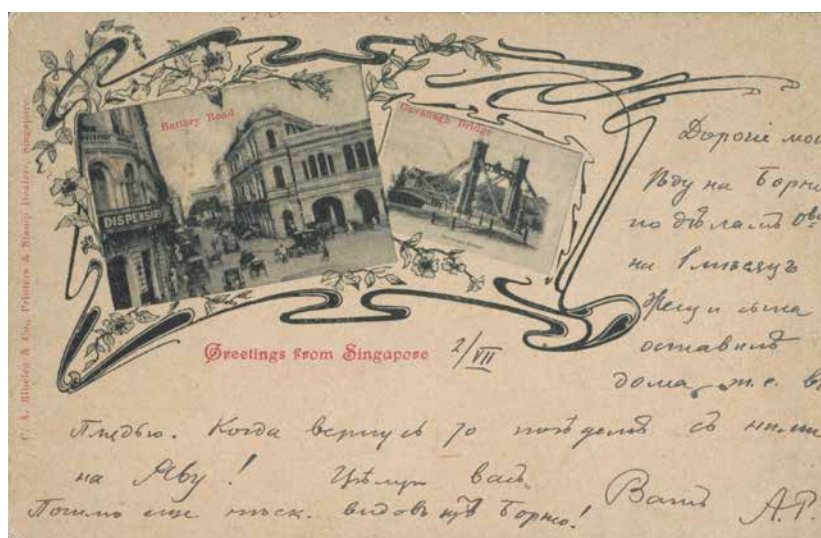 C. A. Ribeiro & Co., Printers & Stamp Dealers, Singapore.
Battery Road
DISPENSARY
Cavanagh Bridge
Greetings from Singapore
2/VII
Дорогiе мои
Ѣду на Борне
по дѣламъ Ова
на 1 мѣсяцъ
Жену и сына
оставилъ
дома, т.е. въ
Когда вернусь то поѣдемъ съ ними
на Яву! Цѣлую васъ.
Пошлю еще нѣск. видовъ изъ Борнео!
Вашъ А.Р.